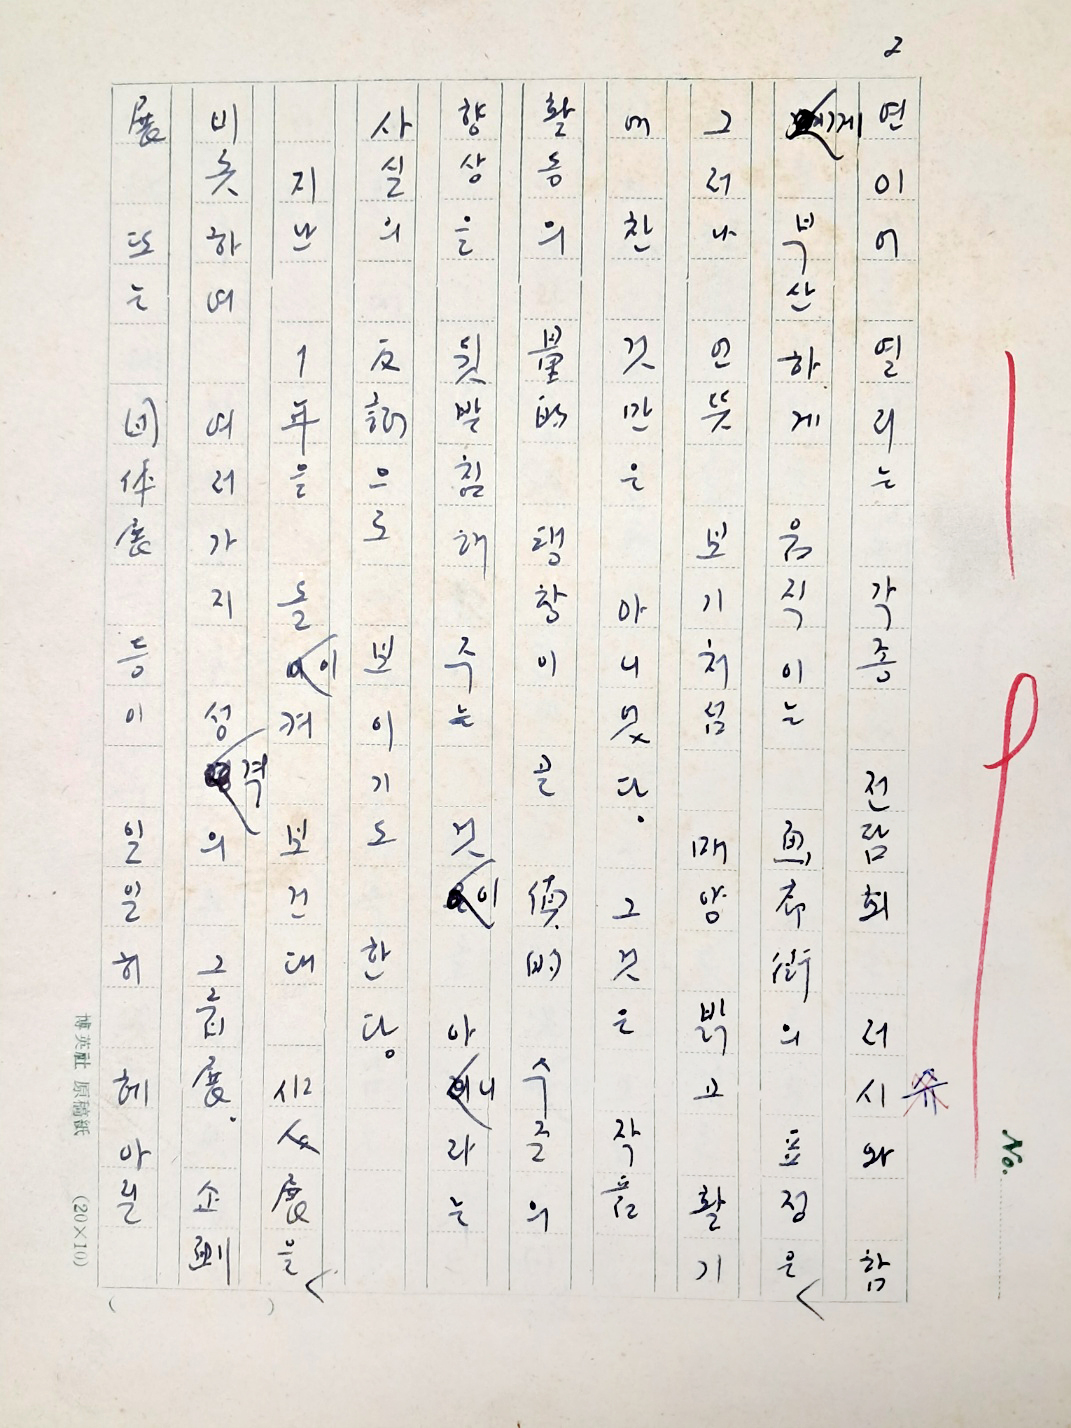 2
연이어 열리는 각종 전람회 러시와 함
께 부산하게 움직이는 画廊街의 표정은
그러나 언뜻 보기처럼 매양 밝고 활기
에 찬 것만은 아니었다. 그것은 작품
활동의 量的 팽창이 곧 質的 수준의
향상을 뒷받침해주는 것이 아니라는
사실의 反証으로 보이기도 한다.
지난 1年을 돌이켜 보건대 展을
비롯하여 여러가지 성격의 그룹展. 企画
展 또는 団体展 등이 일일히 헤아릴
No.
博英社 原稿紙 (20×10)